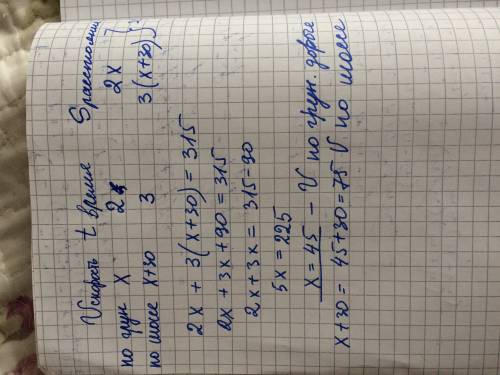 V скорость t время S расстояние
по грун x 2ч 2x
по шоссе x+30 3 3(x+30)
2x + 3(x+30) = 315
2x + 3x + 90 = 315
2x + 3x = 315-90
5x = 225
x = 45 - V по грун. дороге
x+30 = 45+30=75 V по шоссе